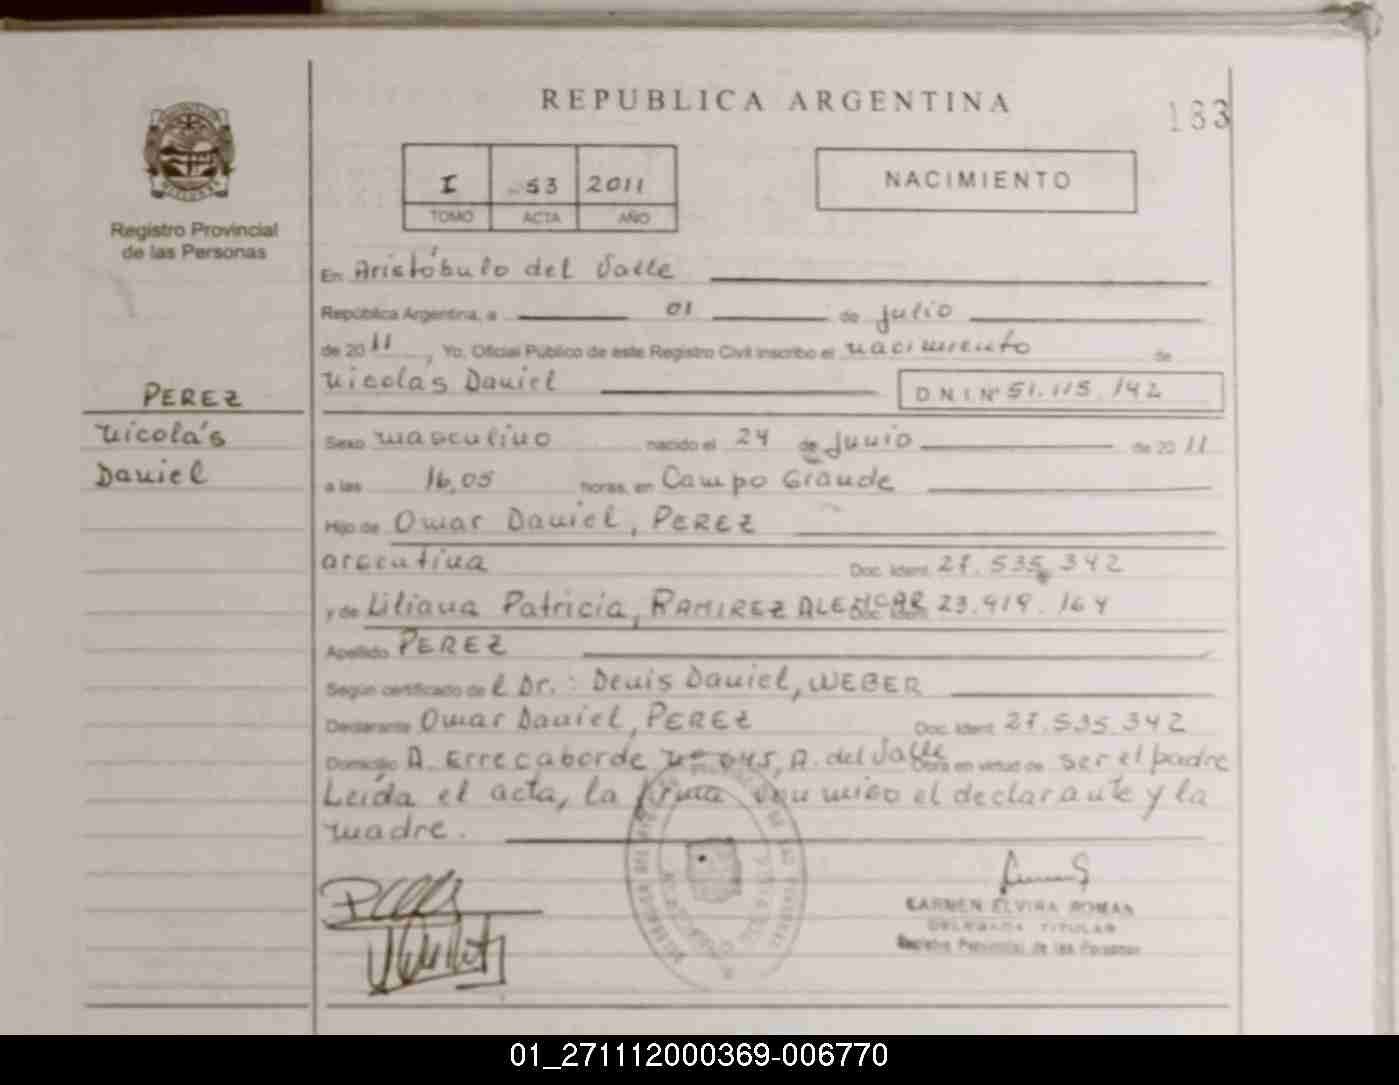 REPUBLICA ARGENTINA
183
I 53 2011
TOMO ACTA AÑO
NACIMIENTO
Registro Provincial
de las Personas
En Aristóbulo del Valle
República Argentina, a 01 de julio
de 2011, Yo, Oficial Público de este Registro Civil inscribo el nacimiento de
Nicolás Daniel D.N.I Nº 51.115.142
PEREZ
Nicolás
Daniel
Sexo masculino nacido el 24 de junio de 2011
a las 16,05 horas, en Campo Grande
Hijo de Omar Daniel, PEREZ
Doc. Ident. 27.535.342
y de Liliana Patricia, RAMIREZ ALENCAR Doc. Ident. 23.919.164
Apellido PEREZ
Según certificado de l Dr.: Denis Daniel, WEBER
Declarante Omar Daniel, PEREZ Doc. Ident. 27.535.342
Domicilio A. Errecaborde Nº 645, A. del Valle Obra en virtud de ser el padre
Leída el acta, la firma el declarante y la
madre.
CARMEN ELVIRA ROMAN
DELEGADA TITULAR
Registro Provincial de las Personas
01_271112000369-006770